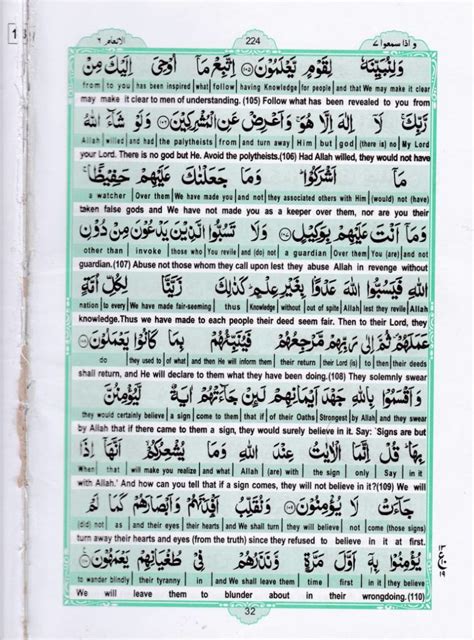 و اذا سمعوا ٧ 224 الانعام ٦
وَلِنُبَيِّنَهٗ لِقَوْمٍ يَّعْلَمُوْنَ ﴿١٠٥﴾ اِتَّبِعْ مَآ اُوْحِيَ اِلَيْكَ مِنْ
from | to you | has been inspired | what | follow | having Knowledge | for people | and that We may make it clear
may make it clear to men of understanding. (105) Follow what has been revealed to you from
رَّبِّكَ ۚ لَآ اِلٰهَ اِلَّا هُوَ ۚ وَاَعْرِضْ عَنِ الْمُشْرِكِيْنَ ﴿١٠٦﴾ وَلَوْ شَآءَ اللّٰهُ
Allah | willed | and had | the polytheists | from | and turn away | Him | but | god | (there is) no | My Lord
your Lord. There is no god but He. Avoid the polytheists.(106) Had Allah willed, they would not have
مَآ اَشْرَكُوْا ؕ وَمَا جَعَلْنٰكَ عَلَيْهِمْ حَفِيْظًا ۚ
a watcher | Over them | We have made you | and not | they associated others with Him | (would) not (have)
taken false gods and We have not made you as a keeper over them, nor are you their
وَمَآ اَنْتَ عَلَيْهِمْ بِوَكِيْلٍ ﴿١٠٧﴾ وَلَا تَسُبُّوا الَّذِيْنَ يَدْعُوْنَ مِنْ دُوْنِ
other than | invoke | those who | You revile | and (do) not | a guardian | Over them | You (are) | and not
guardian.(107) Abuse not those whom they call upon lest they abuse Allah in revenge without
اللّٰهِ فَيَسُبُّوا اللّٰهَ عَدْوًۢا بِغَيْرِ عِلْمٍ ؕ كَذٰلِكَ زَيَّنَّا لِكُلِّ اُمَّةٍ
nation | to every | We have made fair-seeming | thus | Knowledge | without | out of spite | Allah | lest they revile | Allah
knowledge.Thus we have made to each people their deed seem fair. Then to their Lord, they
عَمَلَهُمْ ۪ ثُمَّ اِلٰى رَبِّهِمْ مَّرْجِعُهُمْ فَيُنَبِّئُهُمْ بِمَا كَانُوْا يَعْمَلُوْنَ ﴿١٠٨﴾
do | they used to | of what | and then He will inform them | their return | their Lord (is) | to | then | their deeds
shall return, and He will declare to them what they have been doing.(108) They solemnly swear
وَاَقْسَمُوْا بِاللّٰهِ جَهْدَ اَيْمَانِهِمْ لَئِنْ جَآءَتْهُمْ اٰيَةٌ لَّيُؤْمِنُنَّ
they would certainly believe | a sign | come to them | that if | of their Oaths | Strongest | by Allah | and they swear
by Allah that if there came to them a sign, they would surely believe in it. Say: 'Signs are but
بِهَا ؕ قُلْ اِنَّمَا الْاٰيٰتُ عِنْدَ اللّٰهِ وَمَا يُشْعِرُكُمْ ۙ اَنَّهَآ اِذَا
When | that | will make you realize | and what | Allah | (are) with | the sign | only | Say | in it
with Allah.' And how can you tell that if a sign comes, they will not believe in it?(109) We will
جَآءَتْ لَا يُؤْمِنُوْنَ ﴿١٠٩﴾ وَنُقَلِّبُ اَفْـِٕدَتَهُمْ وَاَبْصَارَهُمْ كَمَا لَمْ
(did) not | as | and their eyes | their hearts | and We shall turn | they will believe | not | come (those signs)
turn away their hearts and eyes (from the truth) since they refused to believe in it at first.
يُؤْمِنُوْا بِهٖٓ اَوَّلَ مَرَّةٍ وَّنَذَرُهُمْ فِيْ طُغْيَانِهِمْ يَعْمَهُوْنَ ﴿١١٠﴾
to wander blindly | their tyranny | in | and We shall leave them | time | first | in it | they believe
We will leave them to blunder about in their wrongdoing.(110)
١٣
ع
١٩
32